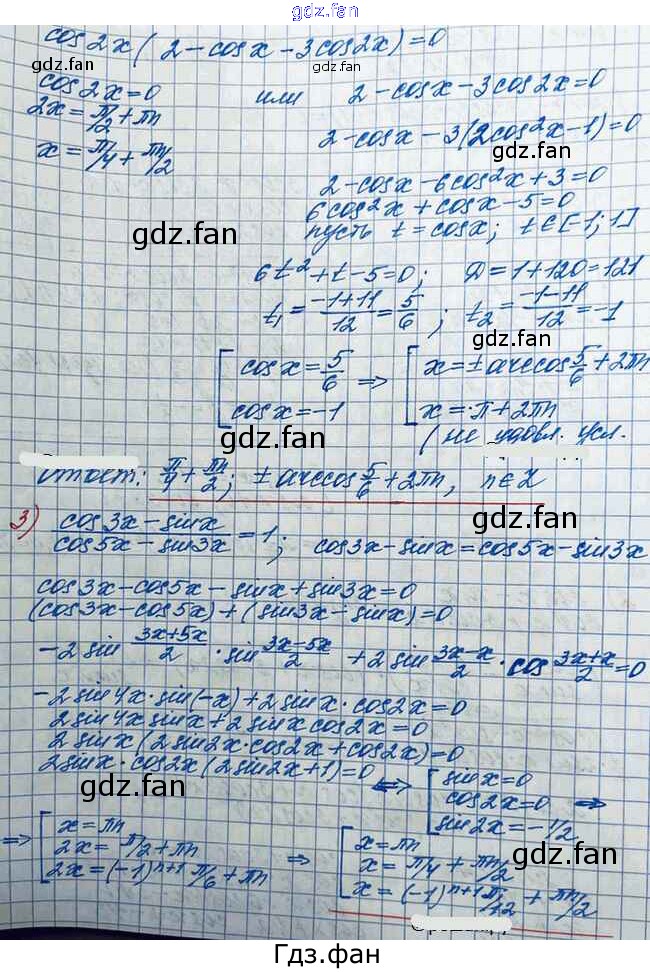 gdz.fan
cos2x(2-cosx-3cos2x)=0
gdz.fan gdz.fan
cos2x=0 или 2-cosx-3cos2x=0
2x=π/2+πn
2-cosx-3(2cos²x-1)=0
x=π/4+πn/2
gdz.fan
2-cosx-6cos²x+3=0
6cos²x+cosx-5=0
gdz.fan
пусть t=cosx; t∈[-1;1]
6t²+t-5=0; D=1+120=121
t₁=(-1+11)/12=5/6; t₂=(-1-11)/12=-1
gdz.fan
[cosx=5/6 => [x=±arccos5/6+2πn
cosx=-1 x=π+2πn
gdz.fan
(не удовл. усл.
Ответ: π/4+πn/2; ±arccos5/6+2πn, n∈Z
gdz.fan gdz.fan
3) (cos3x-sinx)/(cos5x-sin3x)=1; cos3x-sinx=cos5x-sin3x
cos3x-cos5x-sinx+sin3x=0
(cos3x-cos5x)+(sin3x-sinx)=0
gdz.fan
-2sin(3x+5x)/2·sin(3x-5x)/2+2sin(3x-x)/2·cos(3x+x)/2=0
-2sin4x·sin(-x)+2sinx·cos2x=0
2sin4xsinx+2sinxcos2x=0
2sinx(2sin2x·cos2x+cos2x)=0
2sinx·cos2x(2sin2x+1)=0 <=> [sinx=0
gdz.fan
cos2x=0 =>
sin2x=-1/2
=> [x=πn => [x=πn
2x=π/2+πn x=π/4+πn/2
gdz.fan
2x=(-1)ⁿ⁺¹π/6+πn x=(-1)ⁿ⁺¹π/12+πn/2
gdz.fan
Гдз.фан